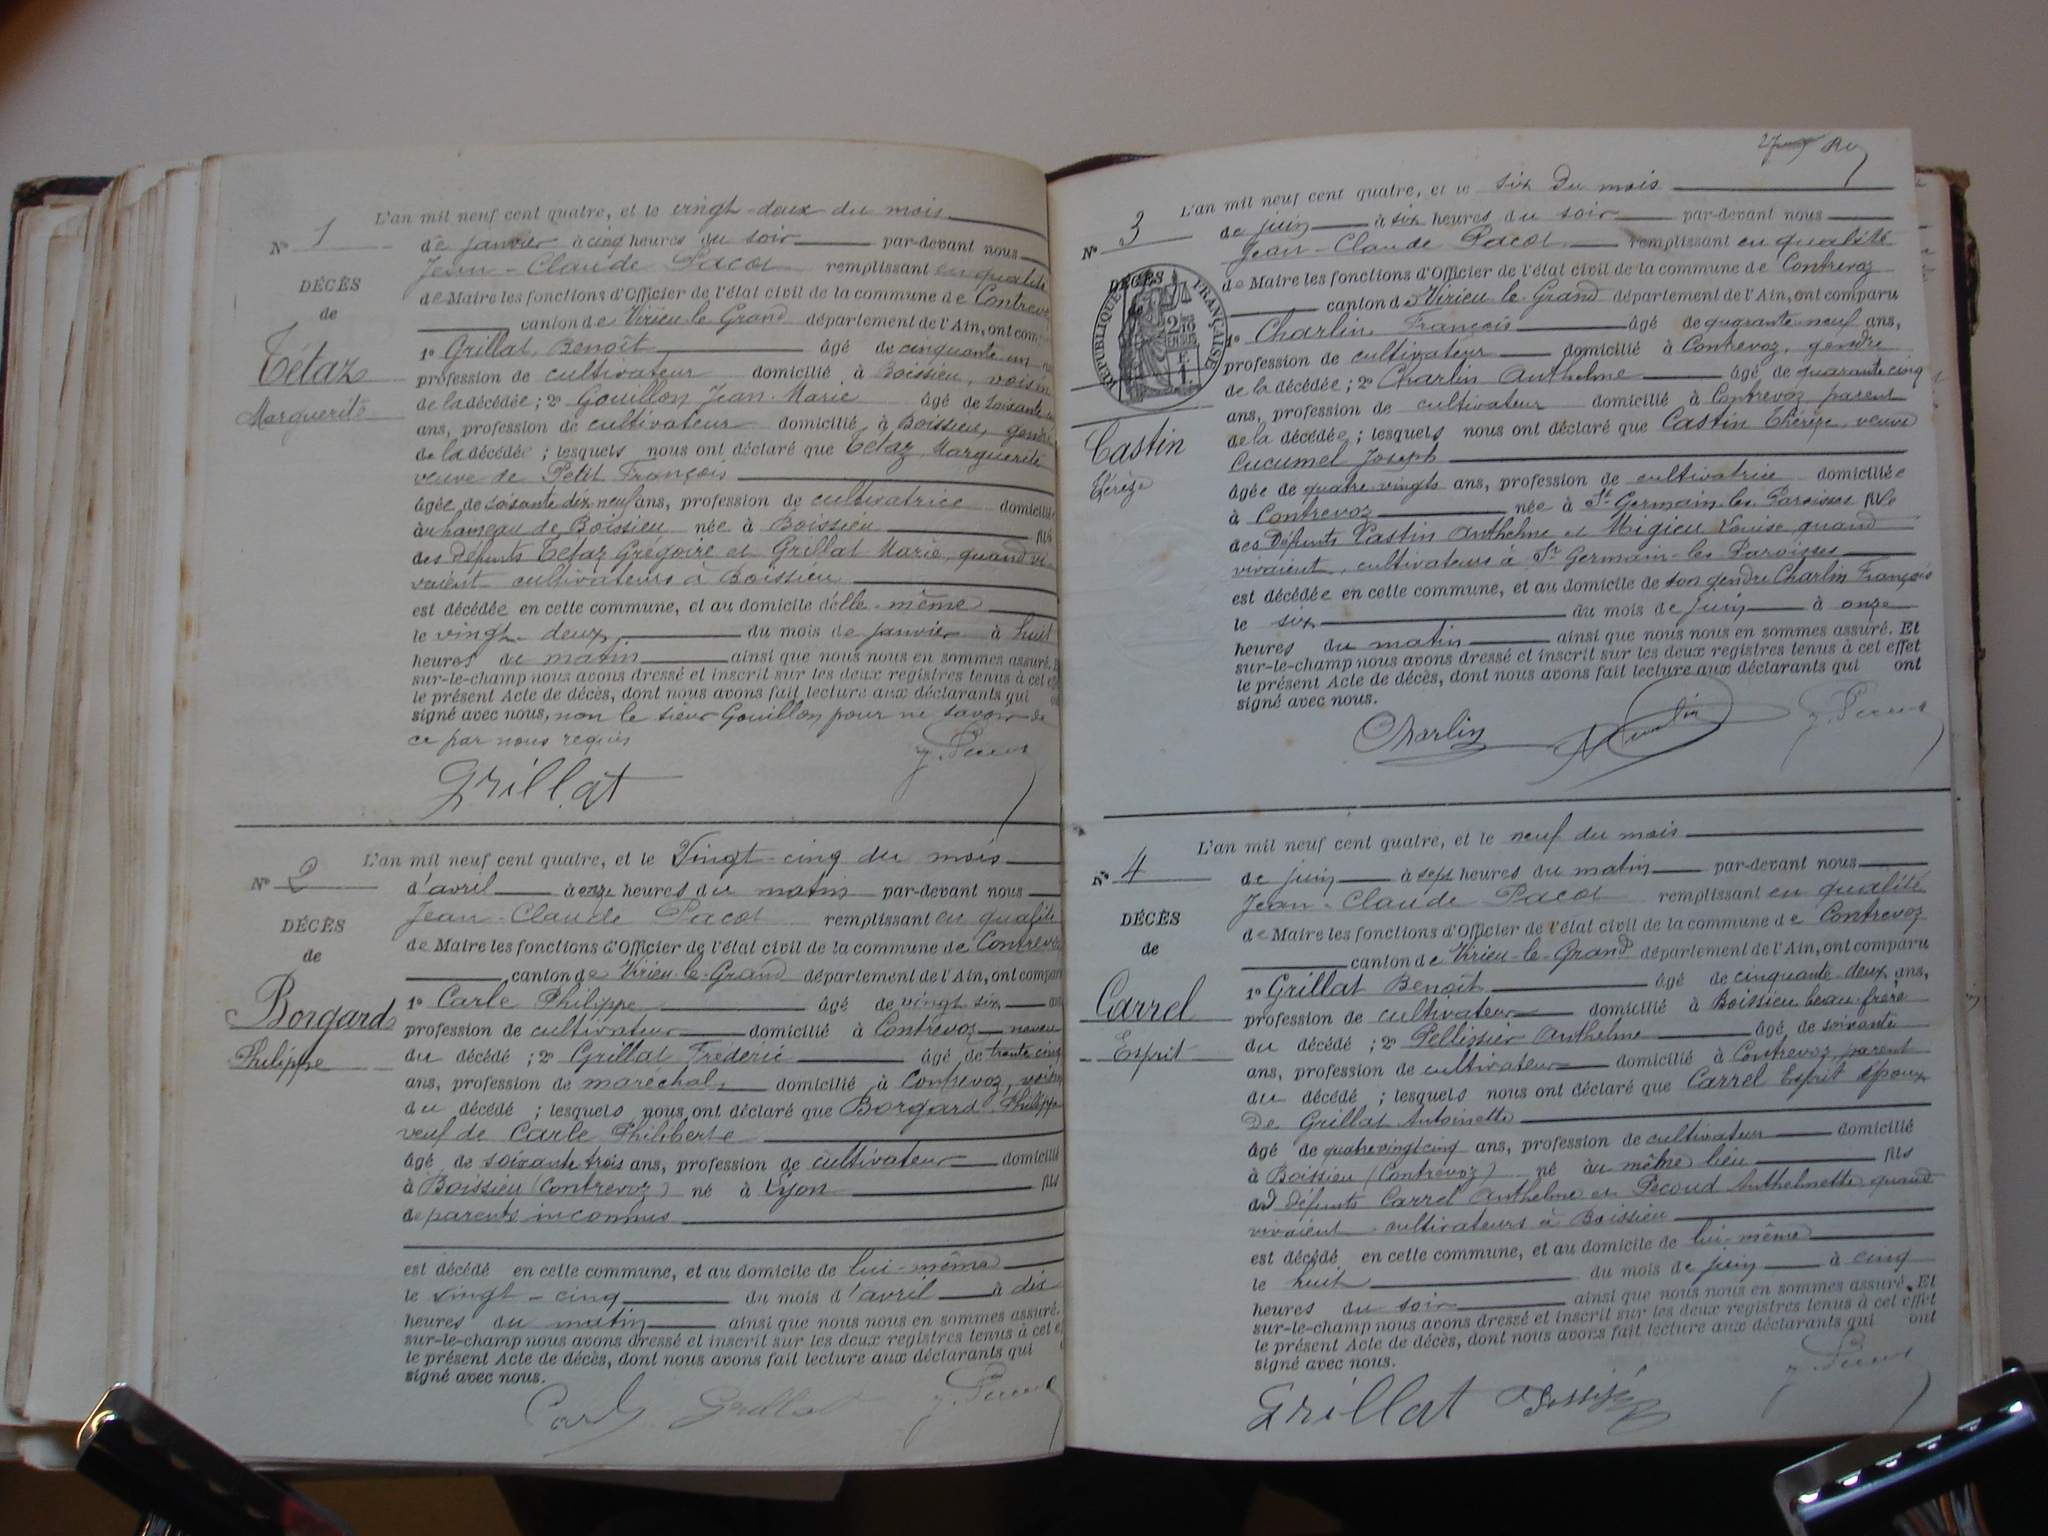 L'an mil neuf cent quatre, et le vingt-deux du mois
N° 1
de janvier à cinq heures du soir par-devant nous
Jean-Claude Pacot remplissant en qualité
DÉCÈS
de Maire les fonctions d'Officier de l'état civil de la commune de Contrevoz
de
canton de Virieu-le-Grand département de l'Ain, ont comp
1° Grillat Benoît âgé de cinquante-un
Tétaz
profession de cultivateur domicilié à Boissieu, voisin
de la décédée ; 2° Gouillon Jean-Marie âgé de soixante
Marguerite
ans, profession de cultivateur domicilié à Boissieu, gendre
de la décédée ; lesquels nous ont déclaré que Tétaz Marguerite
veuve de Petit François
âgée de soixante dix neuf ans, profession de cultivatrice domicilié
au hameau de Boissieu née à Boissieu fille
des défunts Tétaz Grégoire et Grillat Marie, quand vi
vaient cultivateurs à Boissieu
est décédée en cette commune, et au domicile d'elle-même
le vingt-deux du mois de janvier à huit
heures de matin ainsi que nous nous en sommes assuré.
sur-le-champ nous avons dressé et inscrit sur les deux registres tenus à cet ef
le présent Acte de décès, dont nous avons fait lecture aux déclarants qui
signé avec nous, non le sieur Gouillon pour ne savoir de
ce par nous requis
Grillat
L'an mil neuf cent quatre, et le Vingt-cinq du mois
N° 2
d'avril à onze heures du matin par-devant nous
Jean-Claude Pacot remplissant en qualité
DÉCÈS
de Maire les fonctions d'Officier de l'état civil de la commune de Contrevoz
de
canton de Virieu-le-Grand département de l'Ain, ont comparu
Borgard
1° Carle Philippe âgé de vingt six ans
profession de cultivateur domicilié à Contrevoz neveu
Philippe
du décédé ; 2° Grillat Fréderic âgé de trente cinq
ans, profession de maréchal domicilié à Contrevoz, voisin
du décédé ; lesquels nous ont déclaré que Borgard Philippe
veuf de Carle Philiberte
âgé de soixante trois ans, profession de cultivateur domicilié
à Boissieu (Contrevoz) né à Lyon fils
de parents inconnus
est décédé en cette commune, et au domicile de lui-même
le vingt-cinq du mois d'avril à dix
heures du matin ainsi que nous nous en sommes assuré.
sur-le-champ nous avons dressé et inscrit sur les deux registres tenus à cet e
le présent Acte de décès, dont nous avons fait lecture aux déclarants qui
signé avec nous.
Carle Grillat
L'an mil neuf cent quatre, et le six du mois
N° 3
de juin à six heures du soir par-devant nous
Jean-Claude Pacot remplissant en qualité
DÉCÈS
de Maire les fonctions d'Officier de l'état civil de la commune de Contrevoz
de
canton de Virieu-le-Grand département de l'Ain, ont comparu
RÉPUBLIQUE FRANÇAISE
1° Charlin François âgé de quarante-neuf ans,
profession de cultivateur domicilié à Contrevoz, gendre
de la décédée ; 2° Charlin Anthelme âgé de quarante cinq
ans, profession de cultivateur domicilié à Contrevoz, parent
Castin
de la décédée ; lesquels nous ont déclaré que Castin Thérèze, veuve
Cucumel Joseph
Thérèze
âgée de quatre vingts ans, profession de cultivatrice domiciliée
à Contrevoz née à St Germain-les-Paroisses fille
des défunts Castin Anthelme et Migieu Louise, quand
vivaient, cultivateurs à St Germain-les-Paroisses
est décédée en cette commune, et au domicile de son gendre Charlin François
le six du mois de juin à onze
heures du matin ainsi que nous nous en sommes assuré. Et
sur-le-champ nous avons dressé et inscrit sur les deux registres tenus à cet effet
le présent Acte de décès, dont nous avons fait lecture aux déclarants qui ont
signé avec nous.
Charlin
L'an mil neuf cent quatre, et le neuf du mois
N° 4
de juin à sept heures du matin par-devant nous
Jean-Claude Pacot remplissant en qualité
DÉCÈS
de Maire les fonctions d'Officier de l'état civil de la commune de Contrevoz
de
canton de Virieu-le-Grand département de l'Ain, ont comparu
Carrel
1° Grillat Benoît âgé de cinquante-deux ans,
profession de cultivateur domicilié à Boissieu beau-frère
Esprit
du décédé ; 2° Pellissier Anthelme âgé de soixante
ans, profession de cultivateur domicilié à Contrevoz, parent
du décédé ; lesquels nous ont déclaré que Carrel Esprit époux
De Grillat Antoinette
âgé de quatre vingt cinq ans, profession de cultivateur domicilié
à Boissieu (Contrevoz) né au même lieu fils
des défunts Carrel Anthelme et Pecoud Anthelmette quand
vivaient cultivateurs à Boissieu
est décédé en cette commune, et au domicile de lui-même
le huit du mois de juin à cinq
heures du soir ainsi que nous nous en sommes assuré. Et
sur-le-champ nous avons dressé et inscrit sur les deux registres tenus à cet effet
le présent Acte de décès, dont nous avons fait lecture aux déclarants qui ont
signé avec nous.
Grillat